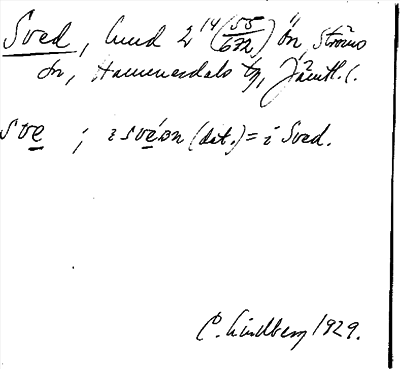 Sved, lund 2 14 (55/672) ön, Ströms
sn, Hammerdals tg, Jämtl. l.
sve ; i svéon (dat.) = i Sved.
C. Lindberg 1929.